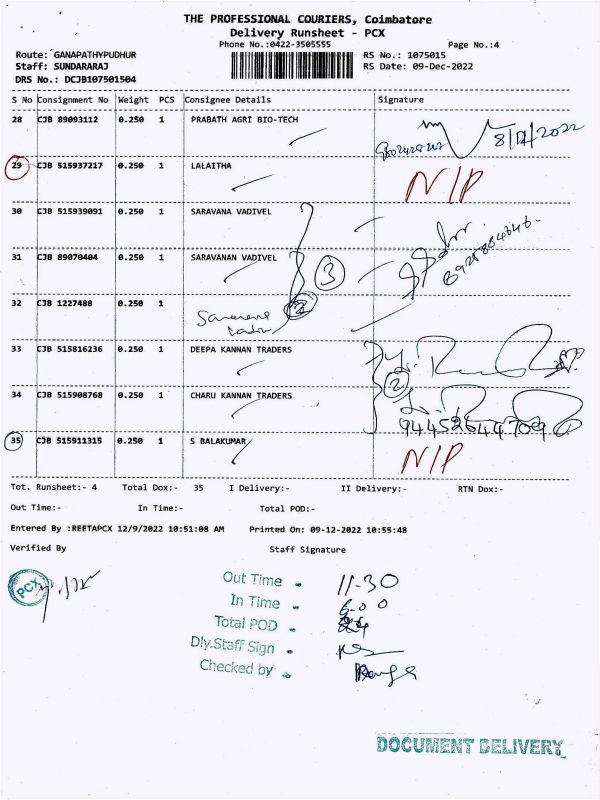 THE PROFESSIONAL COURIERS, Coimbatore
Delivery Runsheet - PCX
Phone No.:0422-3505555 Page No.:4
Route: GANAPATHYPUDHUR RS No.: 1075015
Staff: SUNDARARAJ RS Date: 09-Dec-2022
DRS No.: DCJB107501504
S No Consignment No Weight PCS Consignee Details Signature
28 CJB 89093112 0.250 1 PRABATH AGRI BIO-TECH
8/12/2022
29 CJB 515937217 0.250 1 LALAITHA N/P
30 CJB 515939091 0.250 1 SARAVANA VADIVEL
31 CJB 89070404 0.250 1 SARAVANAN VADIVEL
3
32 CJB 1227488 0.250 1
2
33 CJB 515816236 0.250 1 DEEPA KANNAN TRADERS
2
34 CJB 515908768 0.250 1 CHARU KANNAN TRADERS
94452644709
35 CJB 515911315 0.250 1 S BALAKUMAR N/P
Tot. Runsheet:- 4 Total Dox:- 35 I Delivery:- II Delivery:- RTN Dox:-
Out Time:- In Time:- Total POD:-
Entered By :REETAPCX 12/9/2022 10:51:08 AM Printed On: 09-12-2022 10:55:48
Verified By Staff Signature
PCX
Out Time - 11-30
In Time - 6-00
Total POD -
Dly.Staff Sign -
Checked by -
DOCUMENT DELIVERY